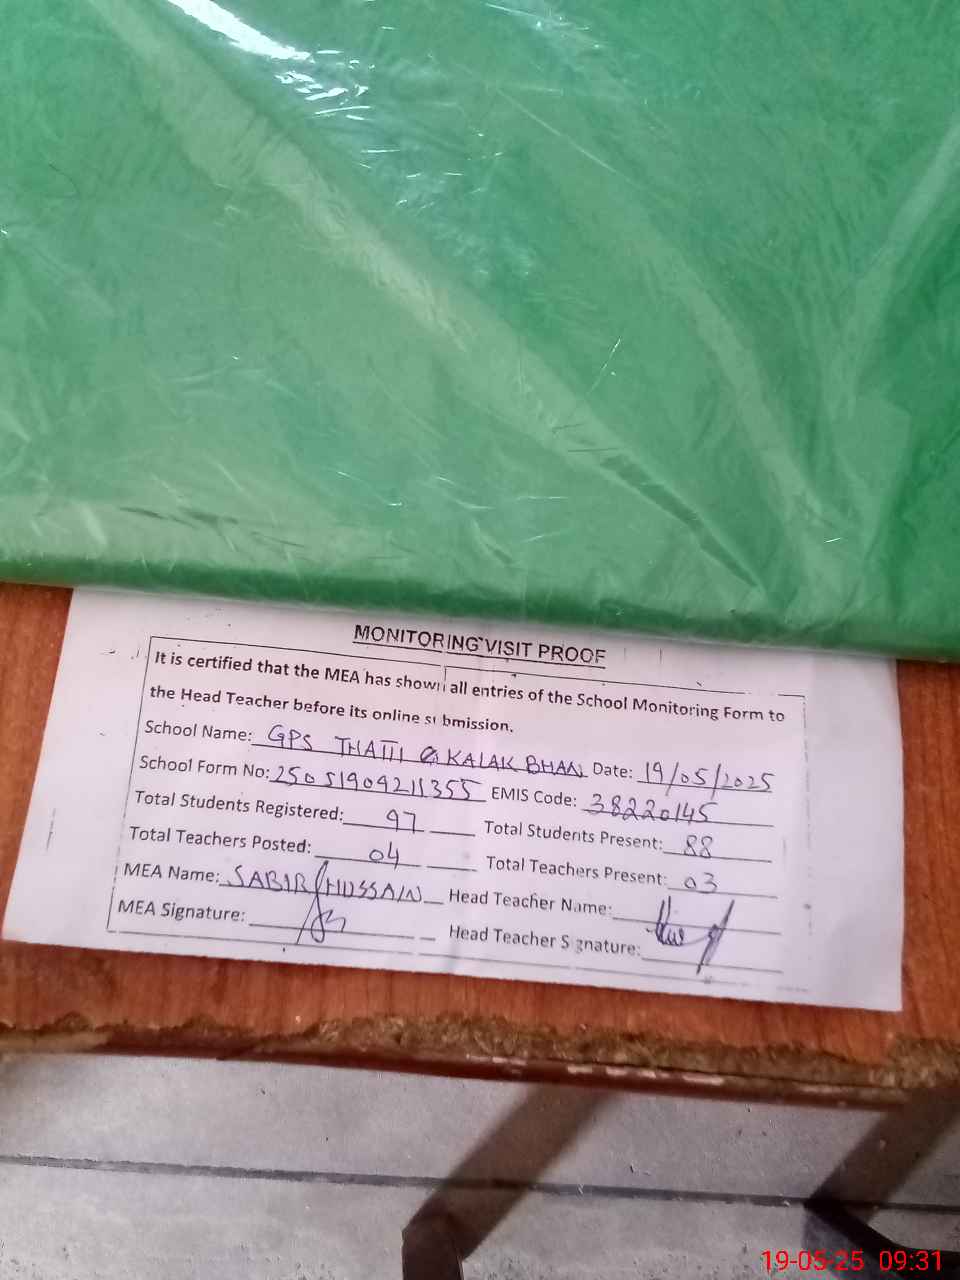 MONITORING VISIT PROOF
It is certified that the MEA has shown all entries of the School Monitoring Form to
the Head Teacher before its online submission.
School Name: GPS THATTI KALAK BHAN Date: 19/05/2025
School Form No: 25051909211355 EMIS Code: 38220145
Total Students Registered: 97 Total Students Present: 88
Total Teachers Posted: 04 Total Teachers Present: 03
MEA Name: SABIR HUSSAIN Head Teacher Name:
MEA Signature: Head Teacher Signature:
19-05-25 09:31